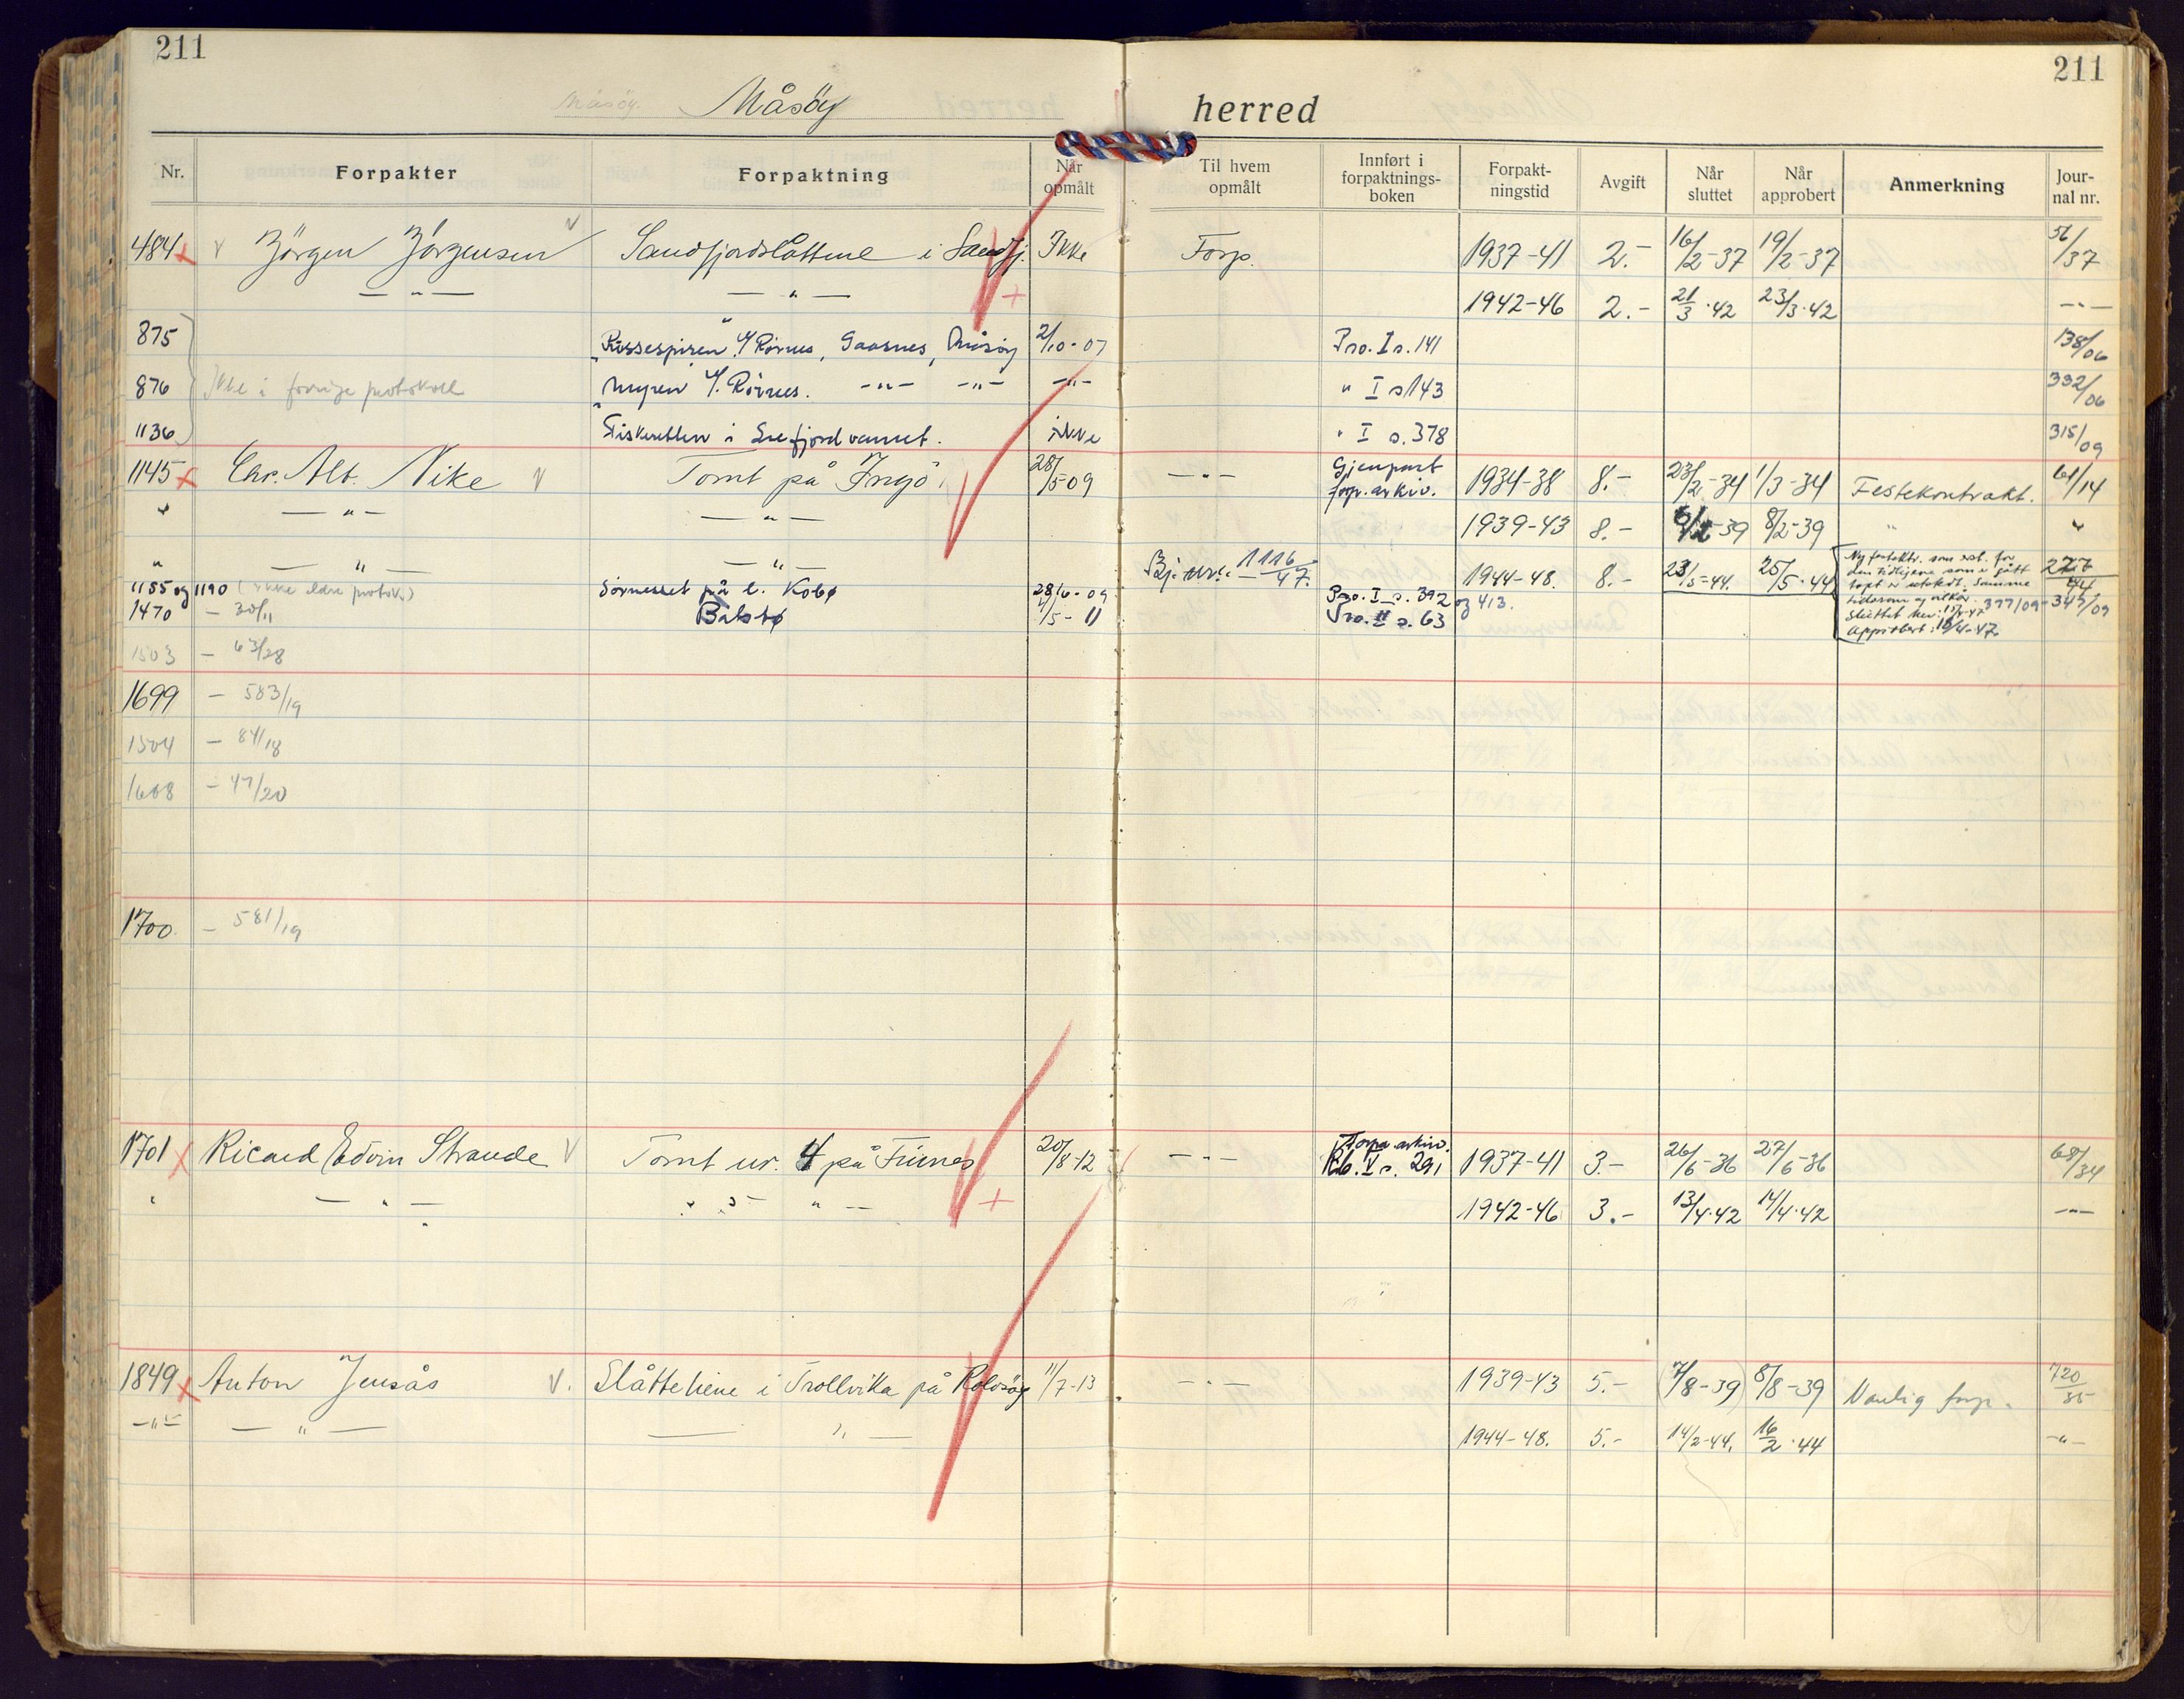 211
211
Måsøy. Måsöy herred
Nr. Forpakter Forpaktning Når opmålt Til hvem opmålt Innført i forpaktnings-boken Forpakt-ningstid Avgift Når sluttet Når approbert Anmerkning Jour-nal nr.
484 x v Jörgen Jörgensen v Sandfjordslåttene i Sandfj. Ikke Forp. 1937-41 2.- 16/2-37 19/2-37 56/37
— " — — " — + 1942-46 2.- 21/3·42 23/3·42 — " —
875 "Rossespiren" u/ Rörnes, Gaasnes, Måsöy 2/10-07 Pro. I s. 141 138/06
876 Ikke i forrige protokoll "Myren u/. Rörnes. — " — — " — — " — " I s 143 332/06
1136 Fiskeretten i fjordvannet. ikke " I s. 378 315/09
1145 x Chr. Alb. Nike v Tomt på Ingö. 28/5-09 — " — Gjenpart forp. arkiv. 1934-38 8.- 23/2-34 1/3-34 Festekontrakt. 61/14
" — " — — " — 1939-43 8.- 6/2-39 8/2-39 " "
" — " — — " — Bj. nr. 1116/47. 1944-48. 8.- 23/5-44. 25/5·44 Ny festektr. som erst. for 227/44
den tidligere som er gått
tapt er utstedt. Samme
tidsrom og vilkår.
Sluttet
Approbert: 18/4-47.
1155 og 1190 (ikke eldre protok.) Sörnesset på l. Kobø 28/6-09 Pro. I s. 392 og 413. 377/09-345/09
1470 — 30/11 Båtstø 4/5-11 Pro. II s. 63
1503 — 63/28
1699 — 583/19
1504 — 84/18
1608 — 47/20
1700. — 581/19
1701 x Ricard Edvin Strande v Tomt nr. 4 på Finnes 20/8-12 — " — Forp. arkiv. Pb. V s. 291 1937-41 3.- 26/6-36 27/6-36 68/34
" — " — " 5 " — + 1942-46 3.- 13/4·42 14/4·42 — " —
1849 x Anton Jensås v. Slåtteliene i Trollvika på Rolvsöy 11/7-13 — " — 1939-43 5.- (7/8-39) 8/8-39 Vanlig forp. 720/35
— " — — " — — " — 1944-48. 5.- 14/2-44. 16/2·44 — " —